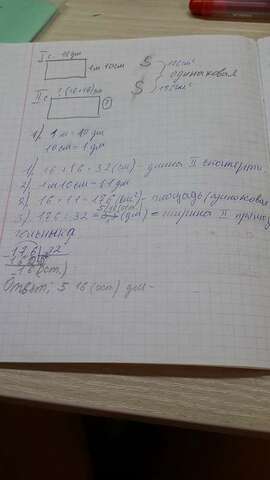 I с. - 16 дм
1м 10см
S 176см²
одинаковая
II с. ? (16+16)дм
?
S 176см²
1) 1 м = 10 дм
10см = 1 дм
1) 16 + 16 = 32 (см) - длина II скатерти
2) 1м10см = 11 дм
3) 16 · 11 = 176 (см²) - площадь (одинаковая
3) 176 : 32 = 5,16(ост) (дм) = ширина II прямоу
гольника
176 | 32
16 (ост.)
Ответ: 5 16 (ост) дм -